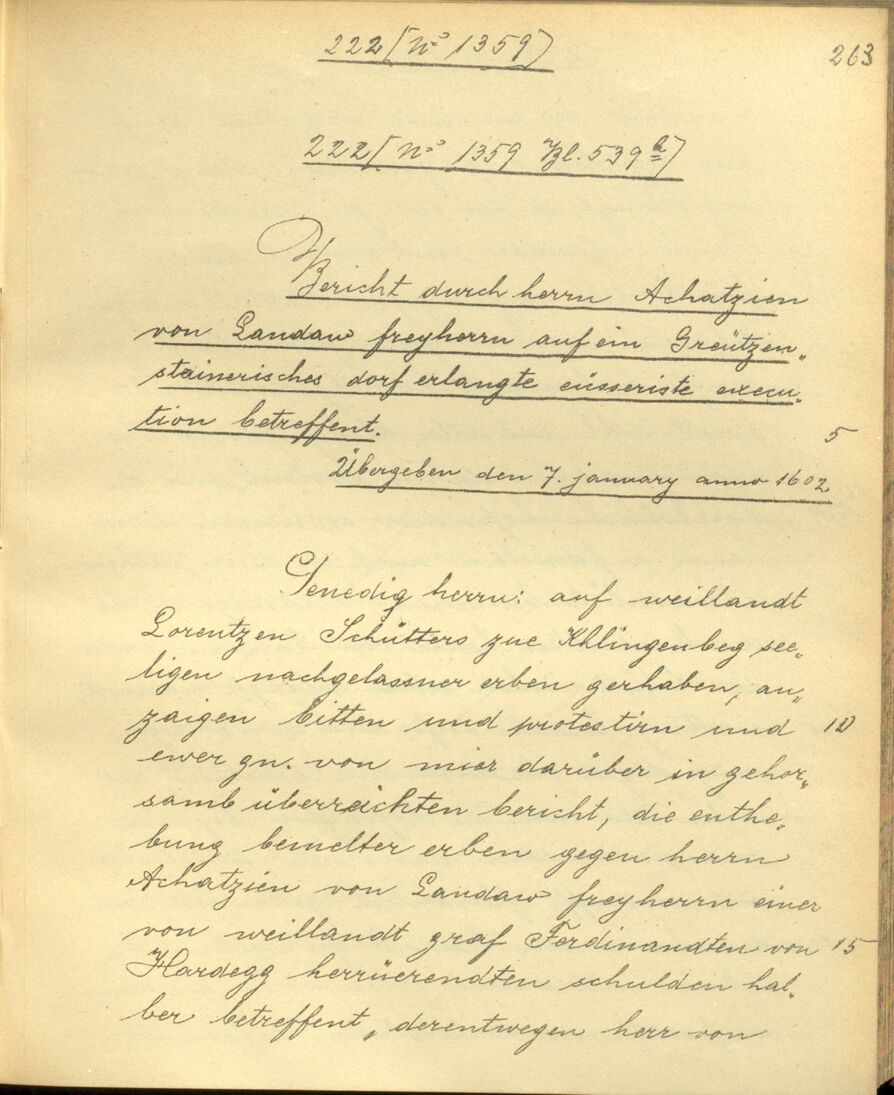 222 [No 1359]
263
222 [No 1359 Bl. 539b]
Bericht durch herrn Achatzien
von Landaw freyherrn auf ein Greützen„
stainerisches dorf erlangte eüsseriste execu„
tion betreffent.
5
Übergeben den 7. january anno 1602
Genedig herrn: auf weillandt
Lorentzen Schütters zue Khlingenbeg see„
ligen nachgelassner erben gerhaben, an„
zaigen bitten und protestirn und 10
ewer gn. von mier darüber in gehor„
samb überreichten bericht, die enthe„
bung bemelter erben gegen herrn
Achatzien von Landaw freyherrn einer
von weillandt graf Ferdinandten von 15
Hardegg herrüerendten schulden hal„
ber betreffent, derentwegen herr von